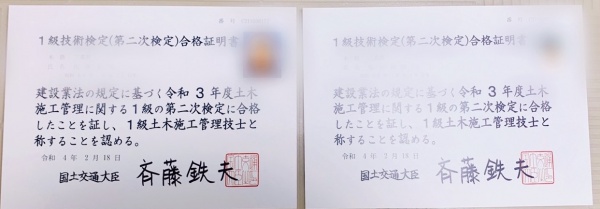 1級技術検定(第二次検定)合格証明書
建設業法の規定に基づく令和3年度土木
施工管理に関する1級の第二次検定に合格
したことを証し、1級土木施工管理技士と
称することを認める。
令和 4年 2月18日
国土交通大臣 斉藤鉄夫
1級技術検定(第二次検定)合格証明書
建設業法の規定に基づく令和3年度土木
施工管理に関する1級の第二次検定に合格
したことを証し、1級土木施工管理技士と
称することを認める。
令和 4年 2月18日
国土交通大臣 斉藤鉄夫